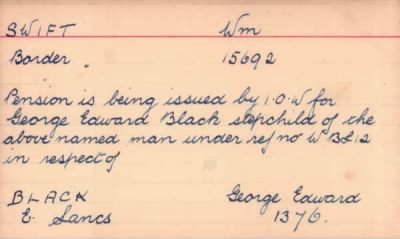 SWIFT Wm
Border. 15692
Pension is being issued by I.O.W for
George Edward Black stepchild of the
above named man under ref no W B & 12
in respect of
BLACK George Edward
E. Lancs 1376.